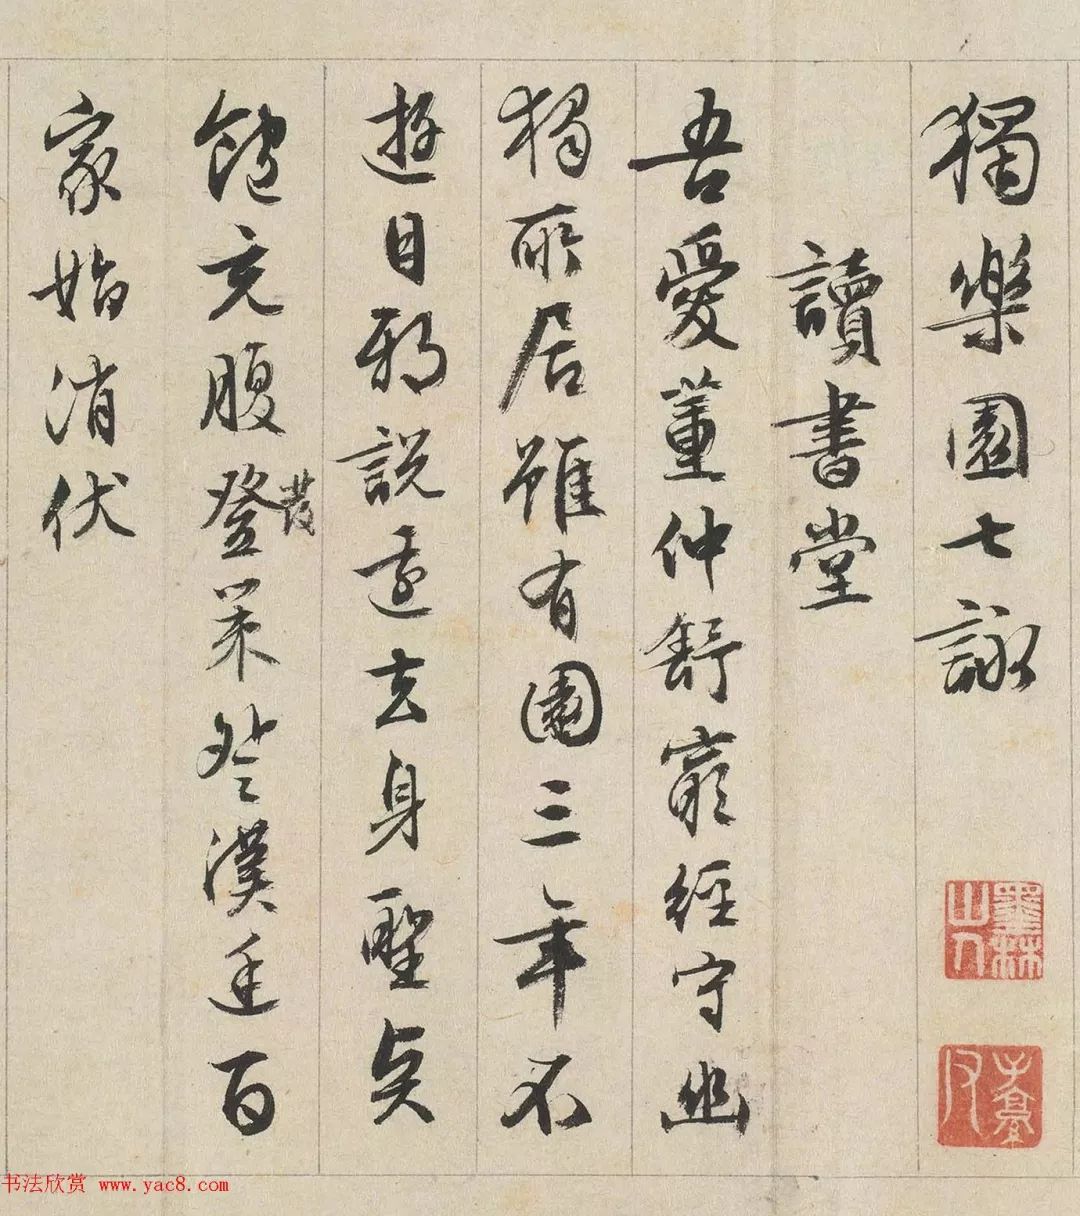 獨樂園七詠
讀書堂
吾愛董仲舒窮經守幽
獨所居雖有園三年不
遊目邪説遠去身聖言
飽充腹登策登漢廷百
發
家始消伏
墨林山人
子京父印
书法欣赏 www.yac8.com